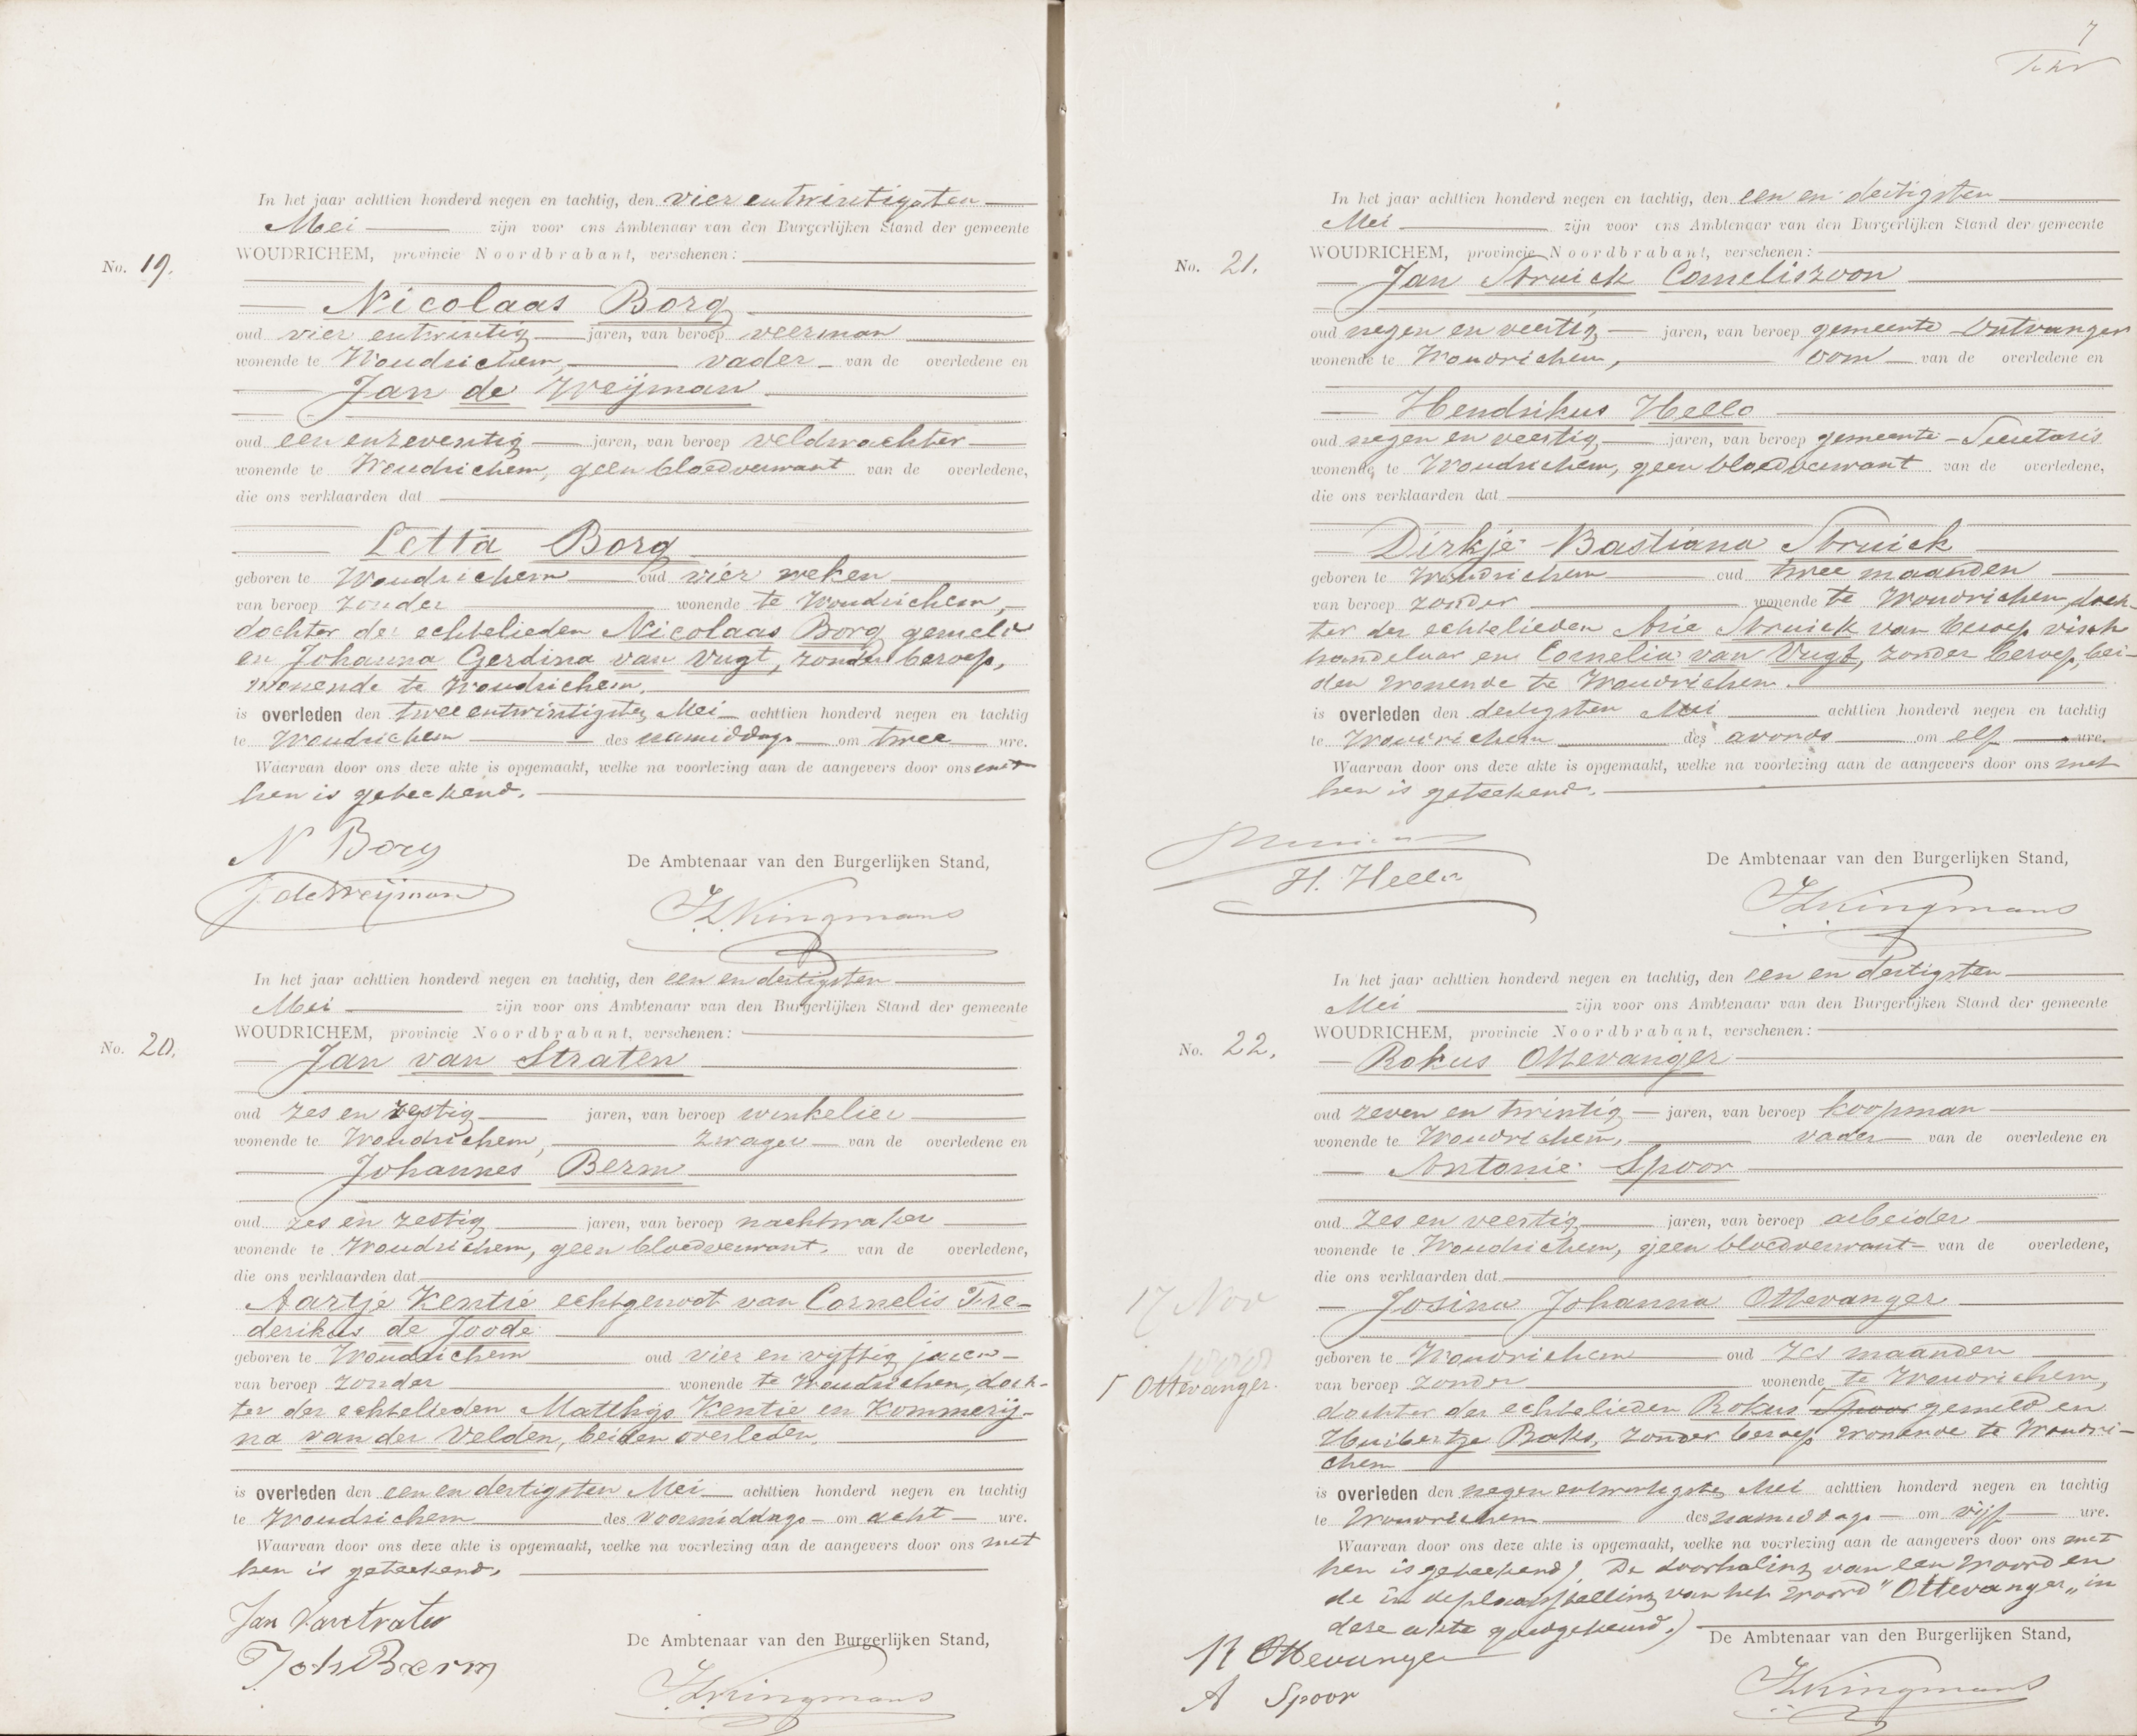 In het jaar achttien honderd negen en tachtig, den vier entwintigsten
Mei zijn voor ons Ambtenaar van den Burgerlijken Stand der gemeente
WOUDRICHEM, provincie Noordbrabant, verschenen:
No. 19.
Nicolaas Borg
oud vier entwintig jaren, van beroep veerman
wonende te Woudrichem, vader van de overledene en
Jan de Weijman
oud een enzeventig jaren, van beroep veldwachter
wonende te Woudrichem, geen bloedverwant van de overledene,
die ons verklaarden dat
Letta Borg
geboren te Woudrichem oud vier weken
van beroep zonder wonende te Woudrichem,
dochter der echtelieden Nicolaas Borg gemeld
en Johanna Gerdina van Vugt, zonder beroep,
wonende te Woudrichem.
is overleden den twee entwintigsten Mei achttien honderd negen en tachtig
te Woudrichem des namiddags om twee ure.
Waarvan door ons deze akte is opgemaakt, welke na voorlezing aan de aangevers door ons met
hen is geteekend.
N Borg
J de Weijman
De Ambtenaar van den Burgerlijken Stand,
Kingmans
In het jaar achttien honderd negen en tachtig, den een en dertigsten
Mei zijn voor ons Ambtenaar van den Burgerlijken Stand der gemeente
WOUDRICHEM, provincie Noordbrabant, verschenen:
No. 20.
Jan van Straten
oud zes en zestig jaren, van beroep winkelier
wonende te Woudrichem, zwager van de overledene en
Johannes Berm
oud zes en zestig jaren, van beroep nachtwaker
wonende te Woudrichem, geen bloedverwant. van de overledene,
die ons verklaarden dat
Aartje Kentie echtgenoot van Cornelis Fre-
derikus de Joode
geboren te Woudrichem oud vier en vyftig jaren
van beroep zonder wonende te Woudrichem, doch-
ter der echtelieden Matthijs Kentie en Kommerij-
na van der Velden, beiden overleden.
is overleden den een en dertigsten Mei achttien honderd negen en tachtig
te Woudrichem des voormiddags om acht ure.
Waarvan door ons deze akte is opgemaakt, welke na voorlezing aan de aangevers door ons met
hen is geteekend.
Jan van Straten
Joh Berm
De Ambtenaar van den Burgerlijken Stand,
Kingmans
7
In het jaar achttien honderd negen en tachtig, den een en dertigsten
Mei zijn voor ons Ambtenaar van den Burgerlijken Stand der gemeente
WOUDRICHEM, provincie Noordbrabant, verschenen:
No. 21.
Jan Struick Corneliszoon
oud negen en veertig jaren, van beroep gemeente Ontvanger
wonende te Woudrichem, oom van de overledene en
Hendrikus Hello
oud negen en veertig jaren, van beroep gemeente-Secretaris
wonende te Woudrichem, geen bloedverwant van de overledene,
die ons verklaarden dat
Dirkje Bastiana Struick
geboren te Woudrichem oud twee maanden
van beroep zonder wonende te Woudrichem, doch-
ter der echtelieden Arie Struick van beroep visch
handelaar en Cornelia van Vugt, zonder beroep, bei-
den wonende te Woudrichem.
is overleden den dertigsten Mei achttien honderd negen en tachtig
te Woudrichem des avonds om elf ure.
Waarvan door ons deze akte is opgemaakt, welke na voorlezing aan de aangevers door ons met
hen is geteekend.
H. Hello
De Ambtenaar van den Burgerlijken Stand,
Kingmans
In het jaar achttien honderd negen en tachtig, den een en dertigsten
Mei zijn voor ons Ambtenaar van den Burgerlijken Stand der gemeente
WOUDRICHEM, provincie Noordbrabant, verschenen:
No. 22.
Rokus Ottevanger
oud zeven en twintig jaren, van beroep koopman
wonende te Woudrichem, vader van de overledene en
Antonie Spoor
oud zes en veertig jaren, van beroep arbeider
wonende te Woudrichem, geen bloedverwant van de overledene,
die ons verklaarden dat
17 Nov
Josina Johanna Ottevanger
geboren te Woudrichem oud zes maanden
van beroep zonder wonende te Woudrichem,
Γ Ottevanger.
dochter der echtelieden Rokus Γ Spoor gemeld en
Huibertje Baks, zonder beroep wonende te Woudri-
chem
is overleden den negen entwintigsten Mei achttien honderd negen en tachtig
te Woudrichem des namiddags om vijf ure.
Waarvan door ons deze akte is opgemaakt, welke na voorlezing aan de aangevers door ons met
hen is geteekend). De doorhaling van een woord en
de in deplaatsstelling van het woord "Ottevanger" in
deze akte goedgekeurd.)
R Ottevanger
A Spoor
De Ambtenaar van den Burgerlijken Stand,
Kingmans